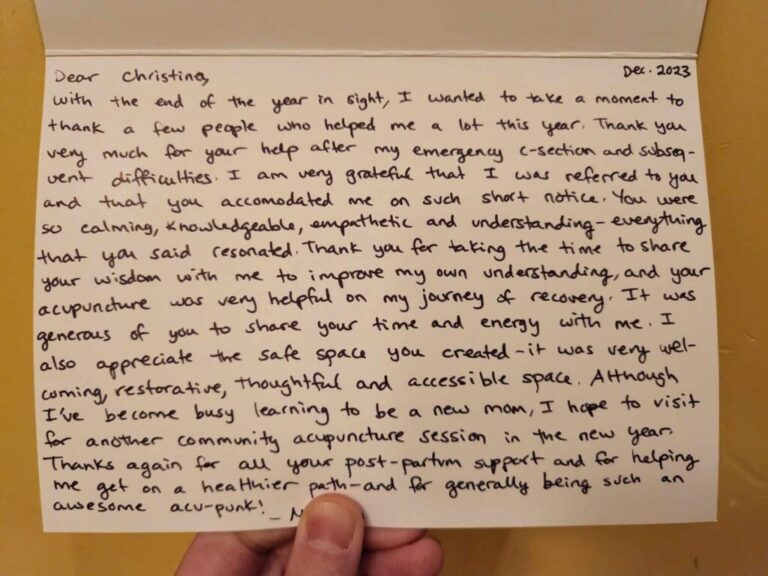 Dec. 2023
Dear Christina,
With the end of the year in sight, I wanted to take a moment to
thank a few people who helped me a lot this year. Thank you
very much for your help after my emergency c-section and subseq-
uent difficulties. I am very grateful that I was referred to you
and that you accomodated me on such short notice. You were
so calming, knowledgeable, empathetic and understanding - everything
that you said resonated. Thank you for taking the time to share
your wisdom with me to improve my own understanding, and your
acupuncture was very helpful on my journey of recovery. It was
generous of you to share your time and energy with me. I
also appreciate the safe space you created - it was very wel-
coming, restorative, thoughtful and accessible space. Although
I've become busy learning to be a new mom, I hope to visit
for another community acupuncture session in the new year.
Thanks again for all your post-partum support and for helping
me get on a healthier path - and for generally being such an
awesome acu-punk! -